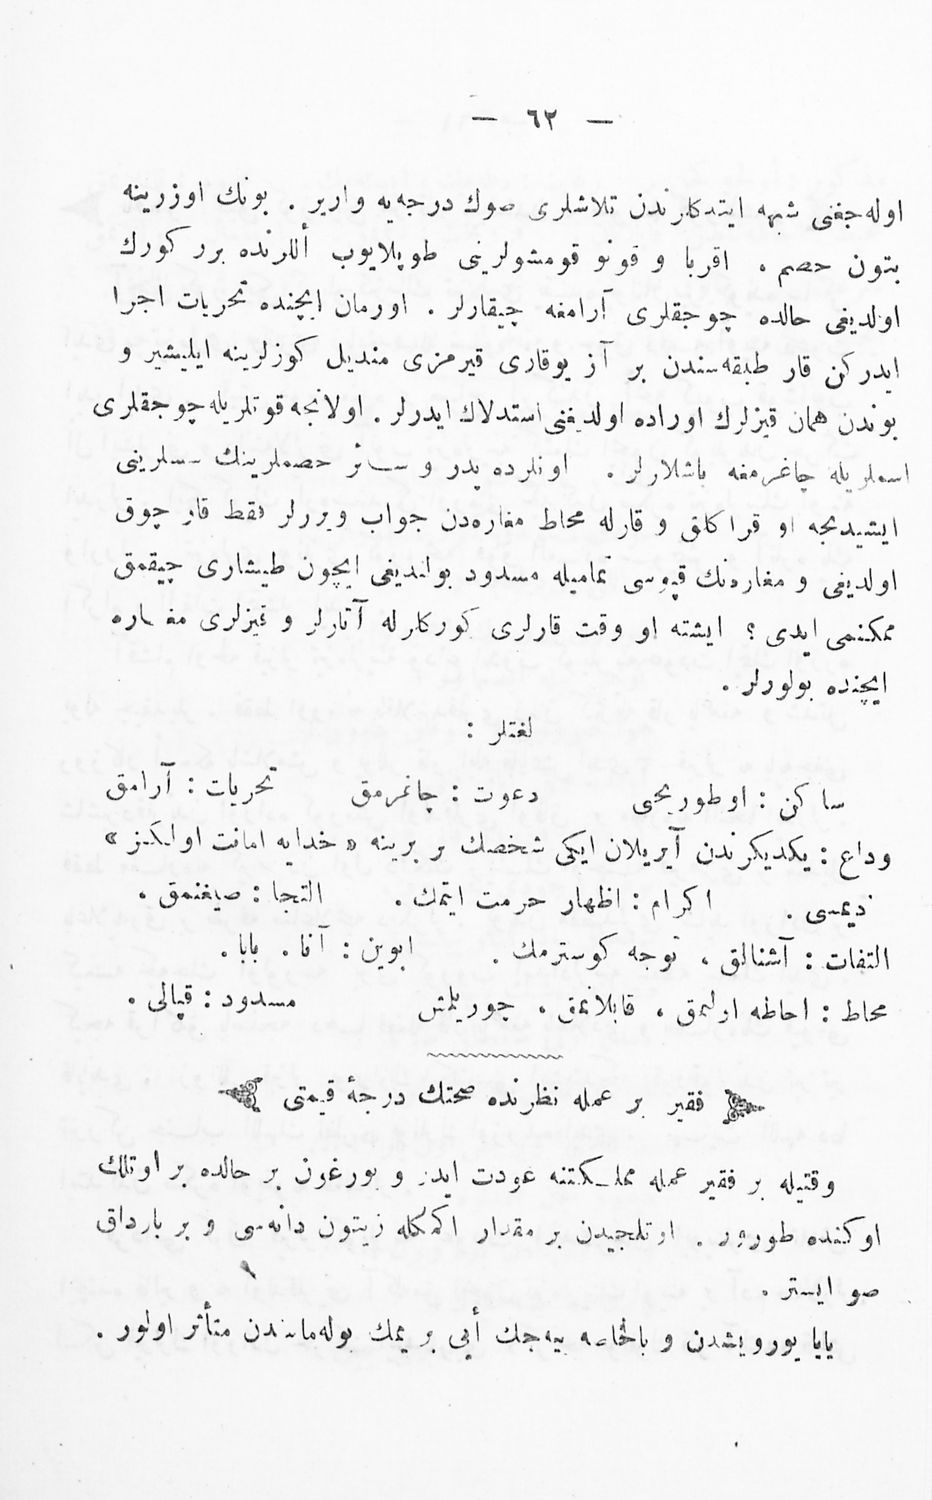 — ٦٢ —
اوله‌جغنی شبهه ایتدكلرندن تلاشلری صوك درجه‌یه وارير . بونك اوزرينه
بتون خصم ، اقربا و قونو قومشولرينی طوپلايوب أللرنده برر كورك
اولديغی حالده چوجقلری آرامغه چيقارلر . اورمان ايچنده تحريات اجرا
ايدركن قار طبقه‌سندن بر آز يوقاری قيرمزی منديل كوزلرينه ايليشير و
بوندن همان قيزلرك اوراده اولديغنی استدلال ايدرلر . اولانجه قوتلريله چوجقلری
اسملريله چاغرمغه باشلارلر . اونلرده پدر و سائر خصملرينك سسلرينی
ايشيدنجه او قراكلق و قارله محاط مغاره‌دن جواب ويررلر فقط قار چوق
اولديغی و مغاره‌نك قپوسی تماميله مسدود بولنديغی ايچون طيشاری چيقمق
ممكنمی ايدی ؟ ايشته او وقت قارلری كوركلرله آتارلر و قيزلری مغاره
ايچنده بولورلر .
لغتلر :
ساكن : اوطوريجی دعوت : چاغرمق تحريات : آرامق
وداع : يكديكرندن آيريلان ايكی شخصك بر برينه « خدايه امانت اولكز »
ديمسی . اكرام : اظهار حرمت ايتمك . التجا : صيغنمق .
التفات : آشنالق ، توجه كوسترمك . ابوين : آنا . بابا .
محاط : احاطه اولنمق ، قابلانمق . چوريلمش مسدود : قپالی .
فقير بر عمله نظرنده صحتك درجهٔ قيمتی
وقتيله بر فقير عمله مملكتنه عودت ايدر و يورغون بر حالده بر اوتلك
اوكنده طورور . اوتلجيدن بر مقدار اكمكله زيتون دانه‌سی و بر بارداق
صو ايستر .
يايا يورويشدن و بالخاصه ييه‌جك أيی بر يمك بوله‌ماسندن متأثر اولور .